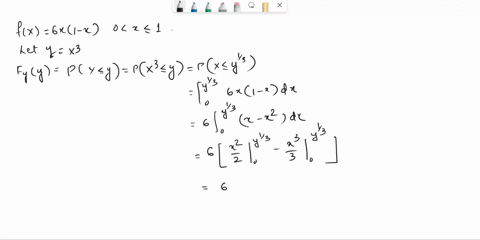 f(x) = 6x(1-x)   0 < x ≤ 1 .
Let y = x³
F_y(y) = P(Y ≤ y) = P(X³ ≤ y) = P(X ≤ y^{1/3})
= ∫_0^{y^{1/3}} 6x(1-x) dx
= 6 ∫_0^{y^{1/3}} (x - x²) dx
= 6 [ x²/2 |_0^{y^{1/3}} - x³/3 |_0^{y^{1/3}} ]
= 6